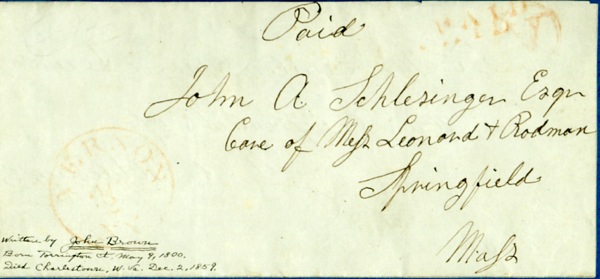 Paid
PAID
John A Schlesinger Esqr
Care of Mess Leonard & Rodman
Springfield
Mass
VERNON
Written by John Brown
Born Torrington Ct. May 9, 1800.
Died Charlestown, W. Va. Dec. 2, 1859.